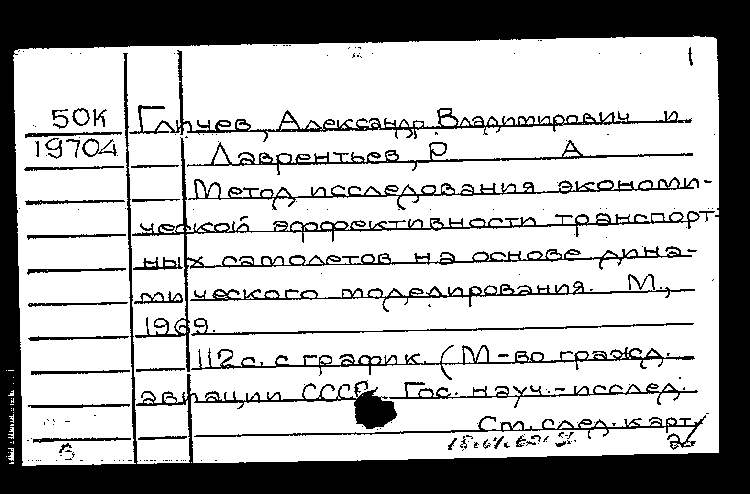 1
50К Гличев, Александр Владимирович и
19704 Лаврентьев, Р А
Метод исследования экономи-
ческой эффективности транспорт-
ных самолетов на основе дина-
мического моделирования. М.,
1969.
112 с. с график. (М-во гражд.
авиации СССР. Гос. науч.-исслед.
См. след. карт.
В